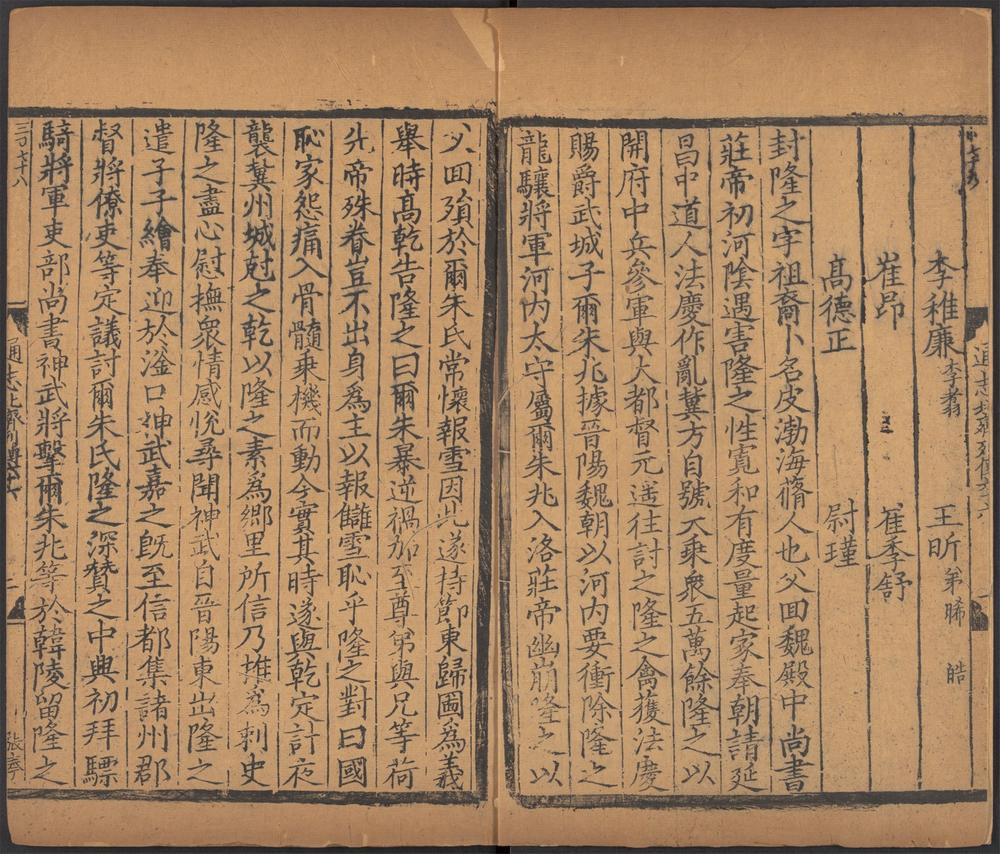 李稚廉 李翥 王昕 弟晞 晧
崔昂 崔季舒
高德正 尉瑾
封隆之字祖裔卜名皮渤海蓨人也父回魏殿中尚書
莊帝初河陰遇害隆之性寬和有度量起家奉朝請延
昌中道人法慶作亂冀方自號大乘衆五萬餘隆之以
開府中兵參軍與大都督元遥往討之隆之禽獲法慶
賜爵武城子爾朱兆據晉陽魏朝以河内要衝除隆之
龍驤將軍河内太守屬爾朱兆入洛莊帝幽崩隆之以
父回殞於爾朱氏常懷報雪因此遂持節東歸圖爲義
舉時高乾告隆之曰爾朱暴逆禍加至尊弟與兄等荷
先帝殊眷豈不出身爲主以報讎雪恥乎隆之對曰國
恥家怨痛入骨髓乘機而動今實其時遂與乾定計夜
襲冀州城尅之乾以隆之素爲鄉里所信乃推爲刺史
隆之盡心慰撫衆情感悦尋聞神武自晉陽東出隆之
遣子子繪奉迎於滏口神武嘉之旣至信都集諸州郡
督將僚吏等定議討爾朱氏隆之深贊之中興初拜驃
騎將軍吏部尚書神武將擊爾朱兆等於韓陵留隆之
三百七十八
通志北齊列傳十六
二